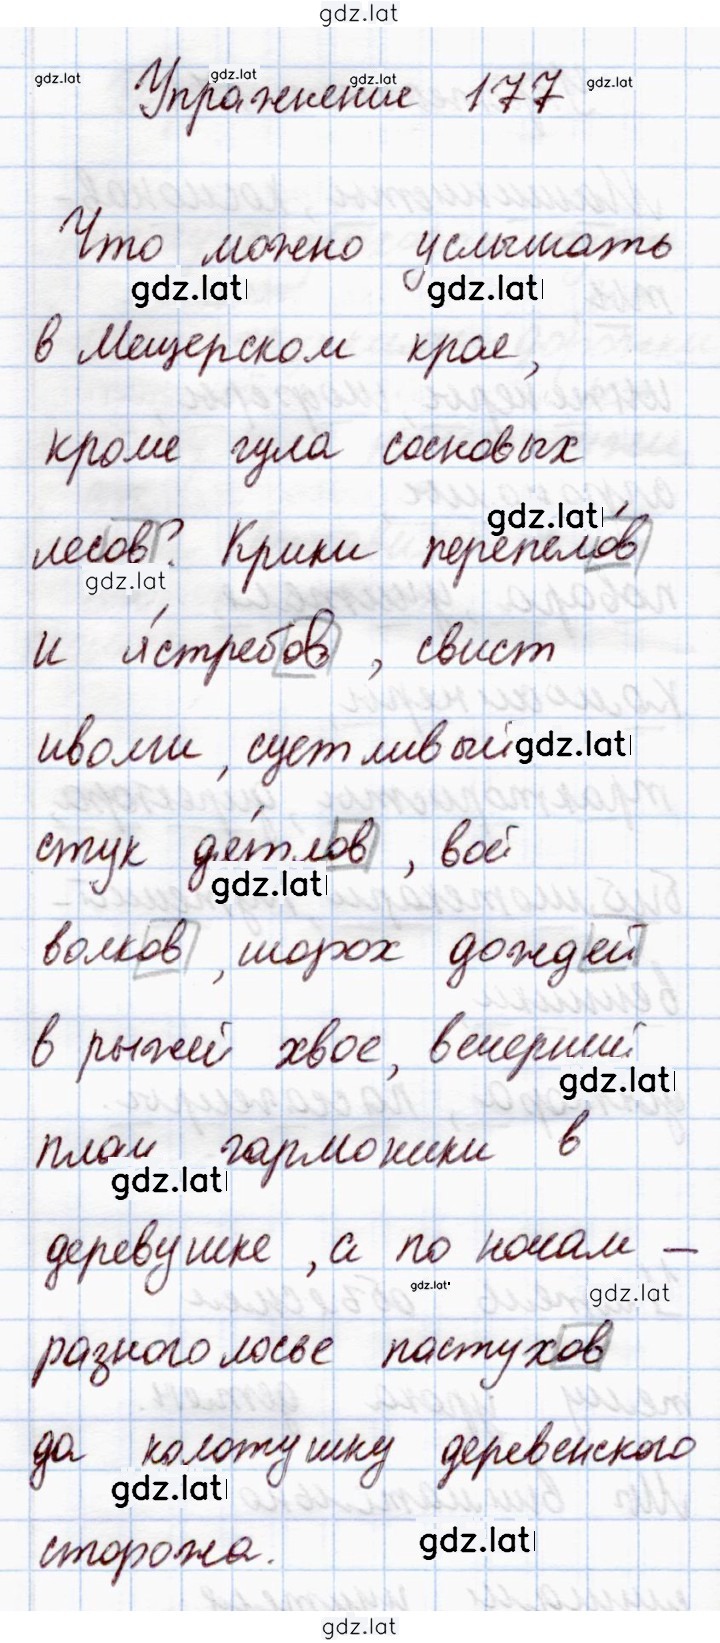 gdz.lat
gdz.lat gdz.lat gdz.lat gdz.lat
Упражнение 177
Что можно услышать
gdz.lat gdz.lat
в Мещерском крае,
кроме гула сосновых
gdz.lat
лесов? Крики перепело́в
gdz.lat
и я́стребов, свист
иволги, суетливый gdz.lat
стук дя́тлов, вой
gdz.lat
волков, шорох дождей
в рыжей хвое, вечерний
gdz.lat
плач гармоники в
gdz.lat
деревушке, а по ночам –
gdz.lat gdz.lat
разноголосье пастухов
да колотушку деревенского
gdz.lat
сторожа.
gdz.lat
gdz.lat